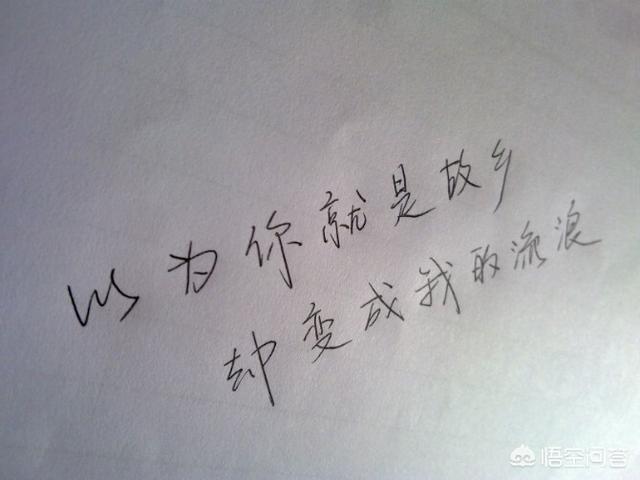 以为你就是故乡
却变成我的流浪
悟空问答